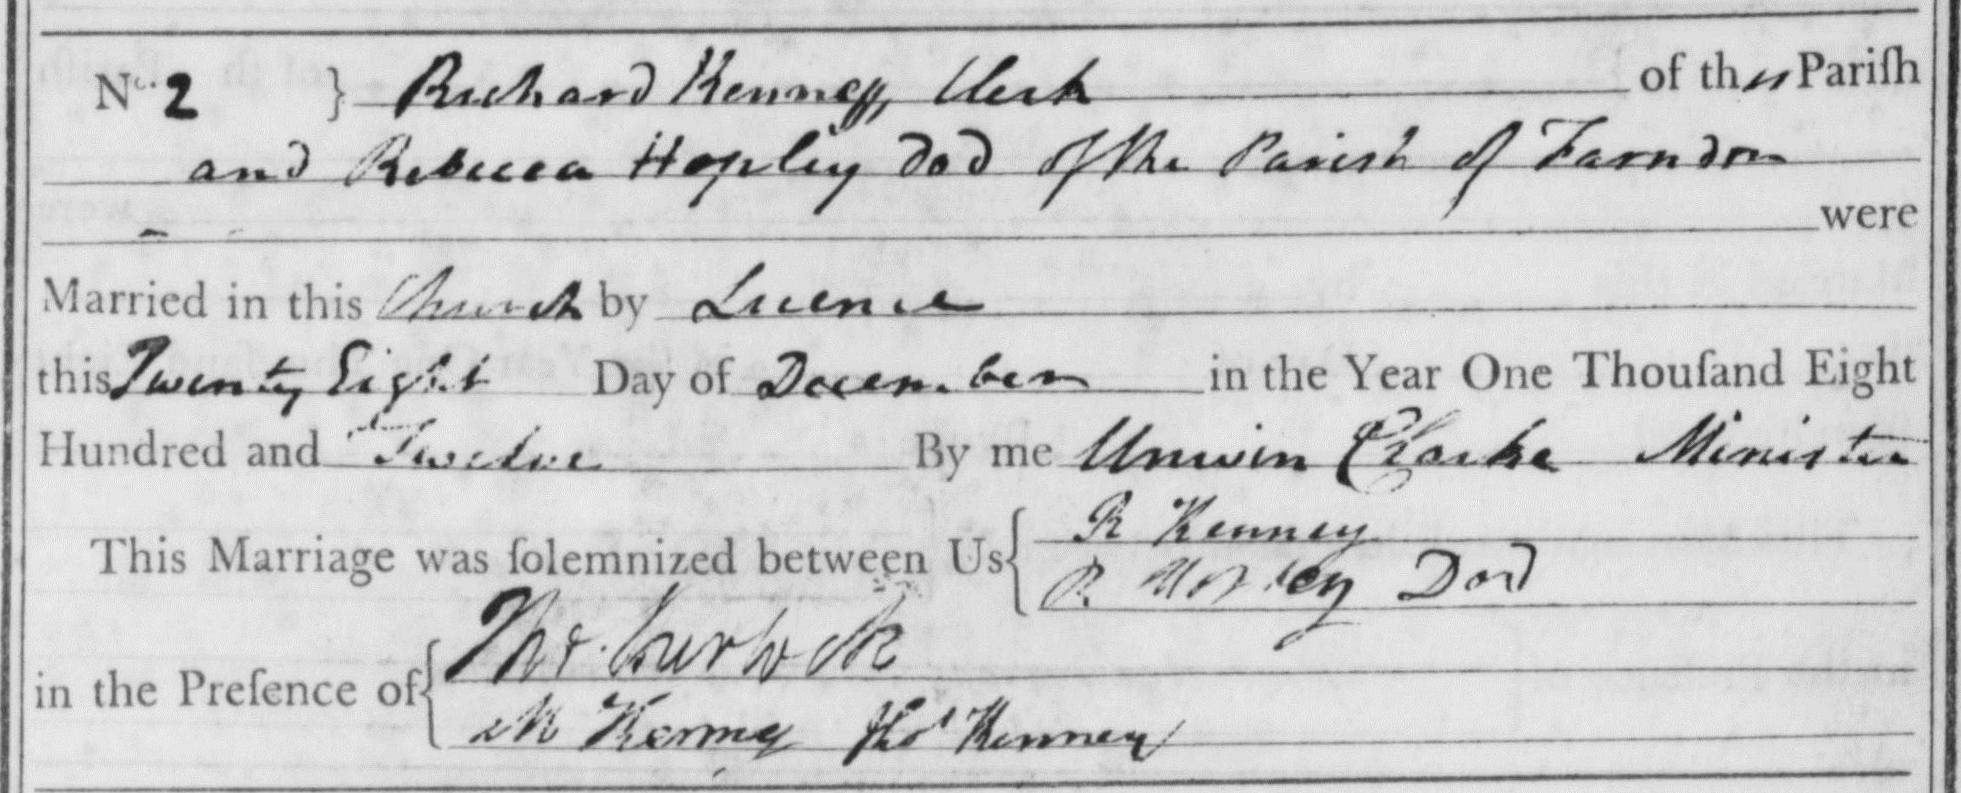 No. 2 } Richard Kenney, Clerk of this Pariſh
and Rebecca Hopley Dod of the Parish of Farndon
were
Married in this Church by Licence
this Twenty Eight Day of December in the Year One Thouſand Eight
Hundred and Twelve By me Unwin Clarke Minister
This Marriage was ſolemnized between Us { R Kenney
R Hopley Dod
in the Preſence of { Thos.
M Kenney Thos Kenney